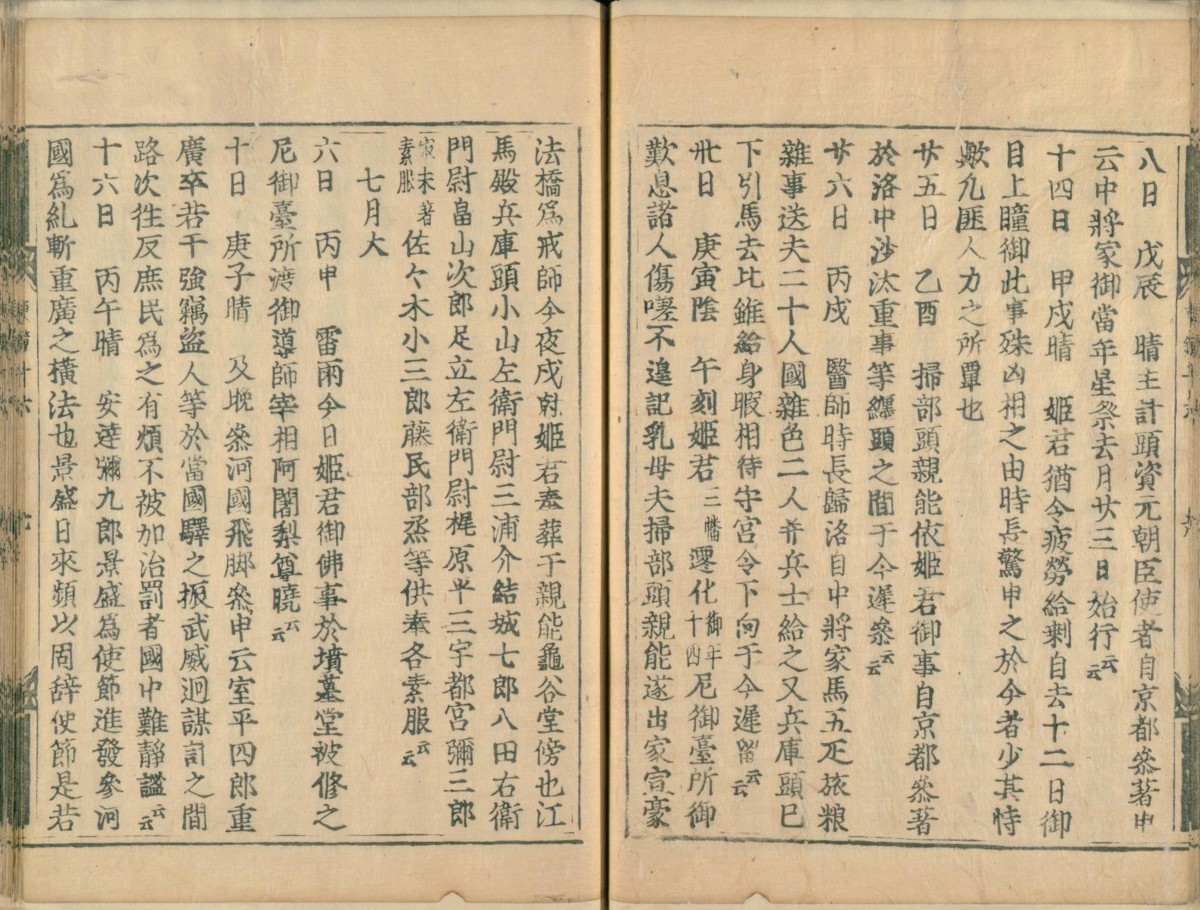 八日　戊辰　晴主計頭資元朝臣使者自京都叅著申
云中將家御當年星祭去月廿三日始行云云
十四日　甲戌晴　姬君猶令疲勞給剩自去十二日御
目上瞳御此事殊凶相之由時長驚申之於今者少其恃
歟凢匪人力之所覃也
廿五日　乙酉　掃部頭親能依姬君御事自京都叅著
於洛中沙汰重事等纏頭之間于今遲叅云云
廿六日　丙戌　醫師時長歸洛自中將家馬五疋旅粮
雜事送夫二十人國雜色二人并兵士給之又兵庫頭已
下引馬去比雖給身暇相待守宮令下向于今遲留云云
卅日　庚寅陰　午刻姬君三幡遷化御年十四尼御臺所御
歎息諸人傷嗟不遑記乳母夫掃部頭親能遂出家宣豪
法橋爲戒師今夜戌尅姬君奉葬于親能龜谷堂傍也江
馬殿兵庫頭小山左衛門尉三浦介結城七郎八田右衛
門尉畠山次郎足立左衛門尉梶原平三宇都宮彌三郎
寂末著素服佐々木小三郎藤民部烝等供奉各素服云云
七月大
六日　丙申　雷雨今日姬君御佛事於墳墓堂被修之
尼御臺所渡御導師宰相阿闍梨尊曉云云
十日　庚子晴　及晚叅河國飛脚叅申云室平四郎重
廣卒若干強竊盜人等於當國驛之振武威廻謀訃之間
路次徃反庶民爲之有煩不被加治罰者國中難靜謐云云
十六日　丙午晴　安達彌九郎景盛爲使節進發參河
國爲糺斬重廣之橫法也景盛日來頻以固辞使節是若